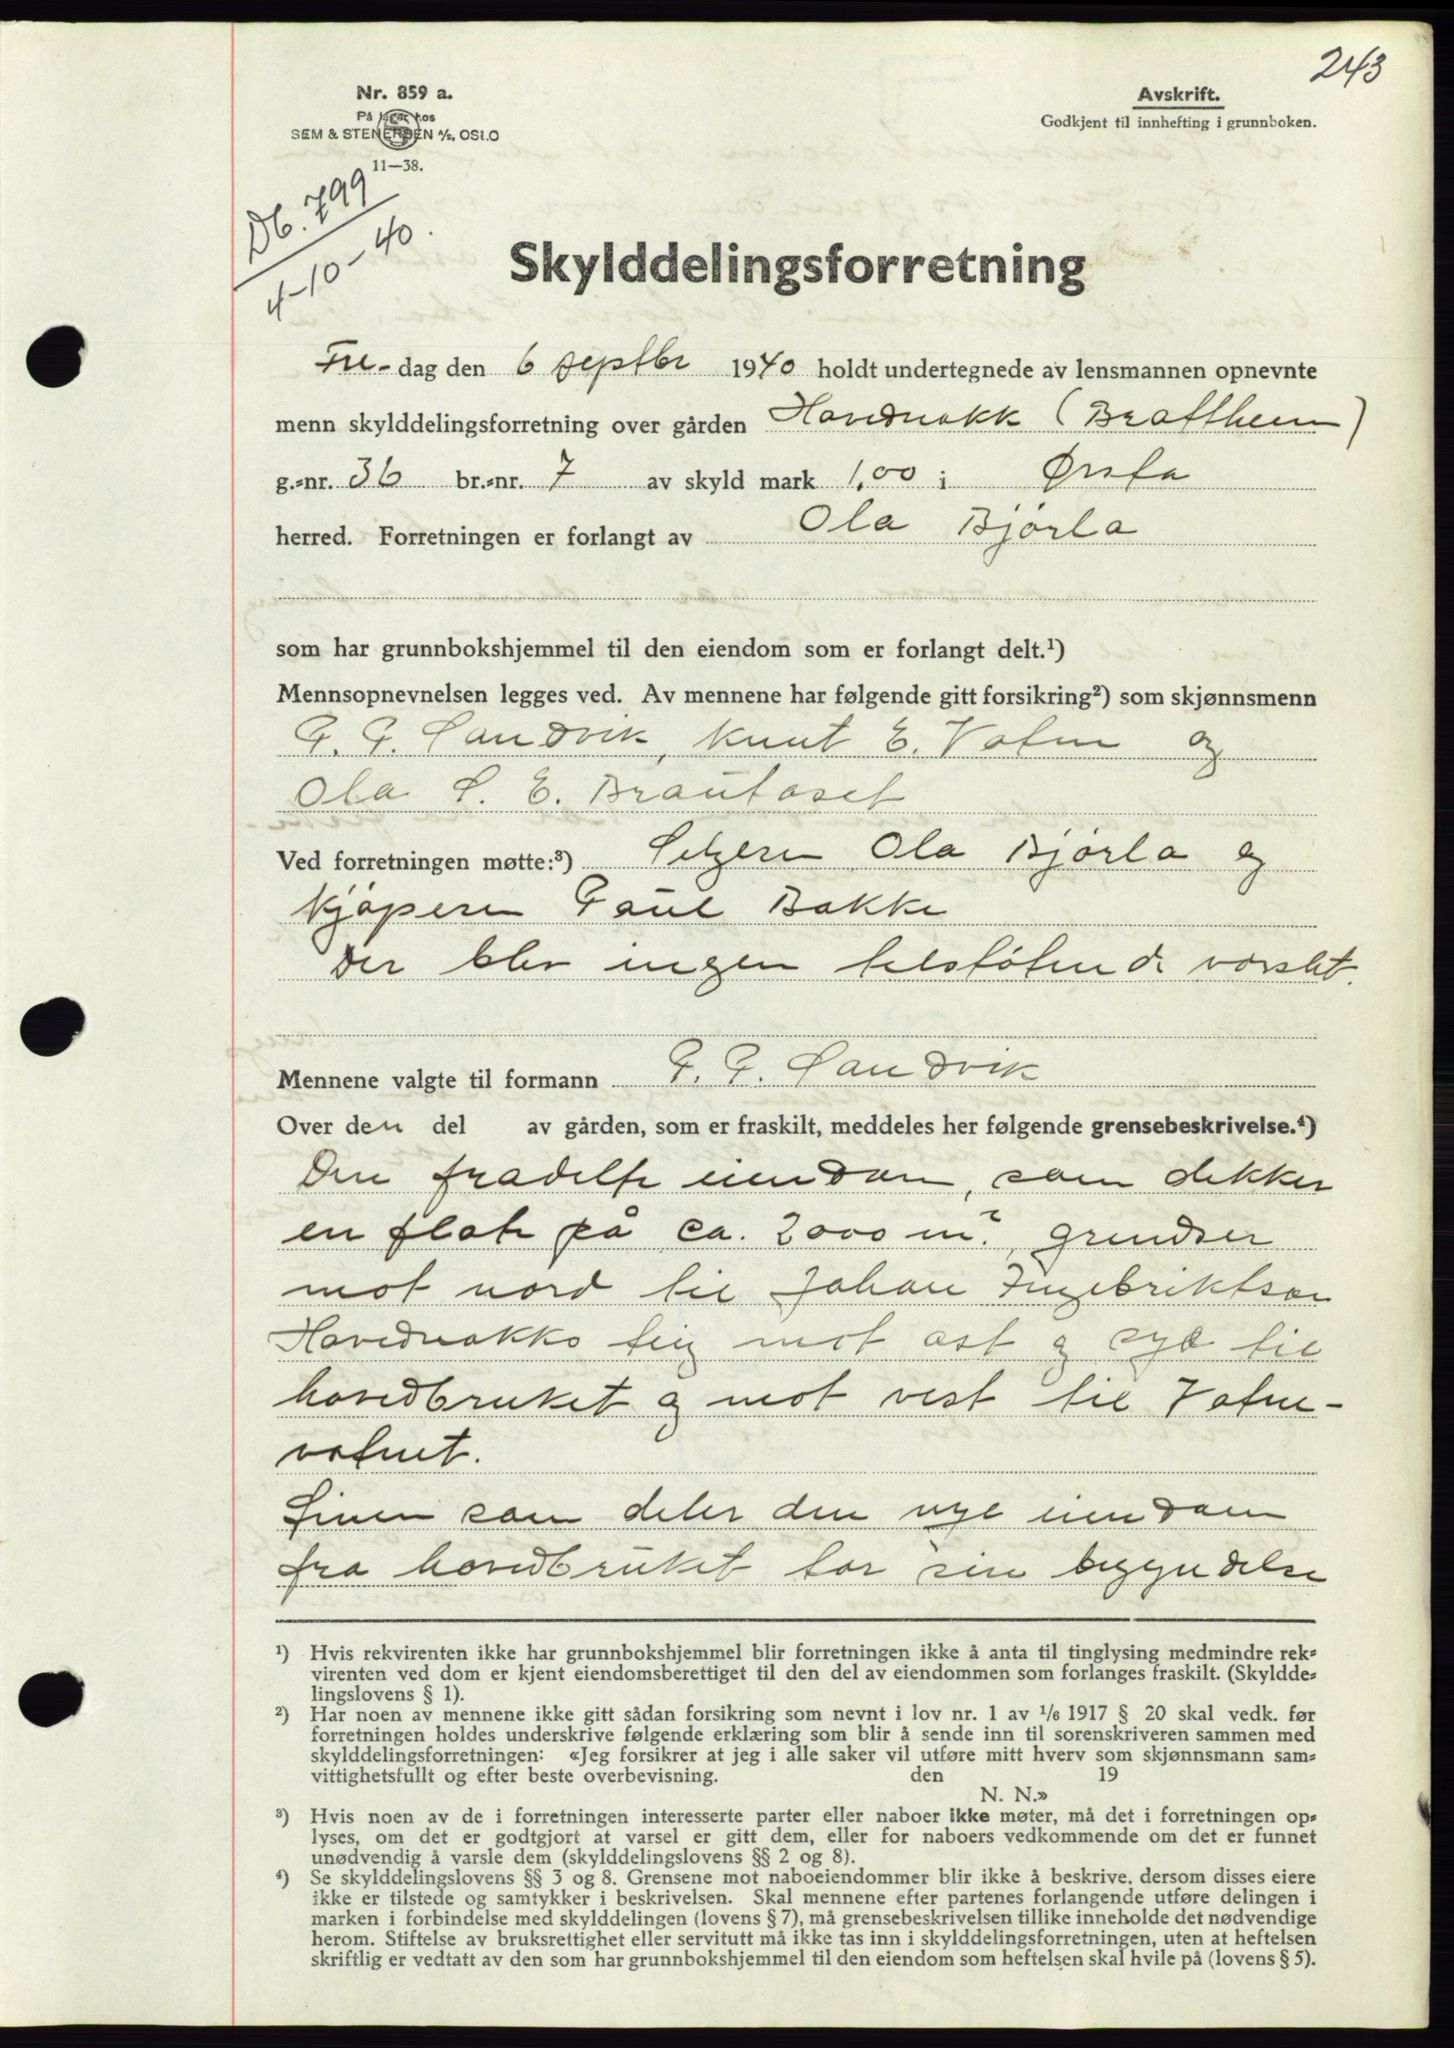 243
Nr. 859 a.
På lager hos
SEM & STENERSEN A/S, OSLO
11—38.
Avskrift.
Godkjent til innhefting i grunnboken.
Db. 799
4-10-40.
Skylddelingsforretning
Fre- dag den 6 septbr 1940 holdt undertegnede av lensmannen opnevnte
menn skylddelingsforretning over gården Hovdenakk (Brattheim)
g.-nr. 36 br.-nr. 7 av skyld mark 1,00 i Ørsta
herred. Forretningen er forlangt av Ola Bjørla
som har grunnbokshjemmel til den eiendom som er forlangt delt.¹)
Mennsopnevnelsen legges ved. Av mennene har følgende gitt forsikring²) som skjønnsmenn
P. P. Sandvik, Knut E. Vatne og
Ola S. E. Brautaset
Ved forretningen møtte:³) Selgeren Ola Bjørla og
kjøperen Paul Bakke
Der blev ingen tilstøtende varslet.
Mennene valgte til formann P. P. Sandvik
Over den del av gården, som er fraskilt, meddeles her følgende grensebeskrivelse.⁴)
Den fradelte eiendom, som dekker
en flate på ca. 2000 m², grendser
mot nord til Johan Ingebriktson
Hovdenakks teig mot ost og syd til
hovedbruket og mot vest til Vatne-
vatnet.
Linen som deler den nye eiendom
fra hovedbruket tar sin begyndelse
¹) Hvis rekvirenten ikke har grunnbokshjemmel blir forretningen ikke å anta til tinglysing medmindre rek-
virenten ved dom er kjent eiendomsberettiget til den del av eiendommen som forlanges fraskilt. (Skyldde-
lingslovens § 1).
²) Har noen av mennene ikke gitt sådan forsikring som nevnt i lov nr. 1 av 1/6 1917 § 20 skal vedk. før
forretningen holdes underskrive følgende erklæring som blir å sende inn til sorenskriveren sammen med
skylddelingsforretningen: «Jeg forsikrer at jeg i alle saker vil utføre mitt hverv som skjønnsmann sam-
vittighetsfullt og efter beste overbevisning. den 19
N. N.»
³) Hvis noen av de i forretningen interesserte parter eller naboer ikke møter, må det i forretningen op-
lyses, om det er godtgjort at varsel er gitt dem, eller for naboers vedkommende om det er funnet
unødvendig å varsle dem (skylddelingslovens §§ 2 og 8).
⁴) Se skylddelingslovens §§ 3 og 8. Grensene mot naboeiendommer blir ikke å beskrive, dersom disses eiere
ikke er tilstede og samtykker i beskrivelsen. Skal mennene efter partenes forlangende utføre delingen i
marken i forbindelse med skylddelingen (lovens § 7), må grensebeskrivelsen tillike inneholde det nødvendige
herom. Stiftelse av bruksrettighet eller servitutt må ikke tas inn i skylddelingsforretningen, uten at heftelsen
skriftlig er vedtatt av den som har grunnbokshjemmel til den eiendom som heftelsen skal hvile på (lovens § 5).